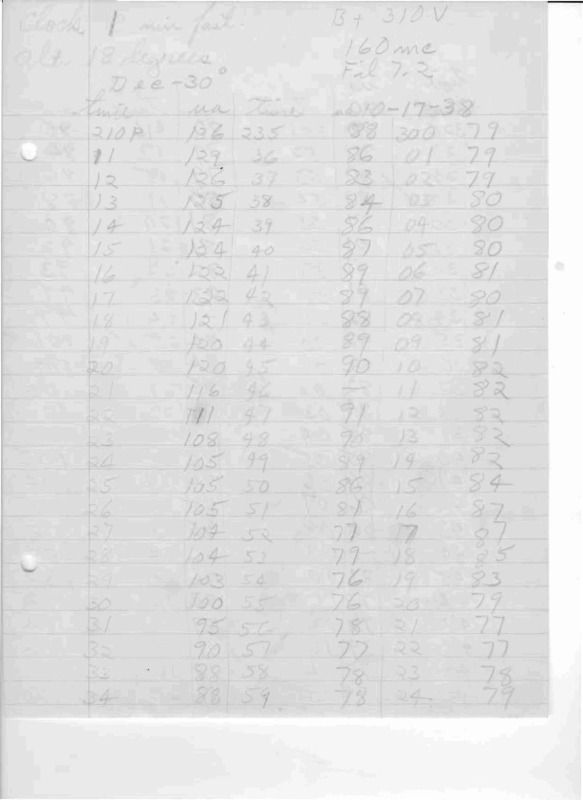 Clock 1 min fast. B+ 310V
alt. 18 degrees 160 mc
Dec -30° Fil 7.2
time ua time ua 10-17-38
210P 136 235 88 300 79
11 129 36 86 01 79
12 126 37 83 02 79
13 125 38 84 03 80
14 124 39 86 04 80
15 124 40 87 05 80
16 122 41 89 06 81
17 122 42 89 07 80
18 121 43 88 08 81
19 120 44 89 09 81
20 120 45 90 10 82
21 116 46 — 11 82
22 111 47 91 12 82
23 108 48 90 13 82
24 105 49 89 14 82
25 105 50 86 15 84
26 105 51 81 16 87
27 104 52 77 7 87
28 104 53 79 18 85
29 103 54 76 19 83
30 100 55 76 20 79
31 95 56 78 21 77
32 90 57 77 22 77
33 88 58 78 23 78
34 88 59 78 24 79